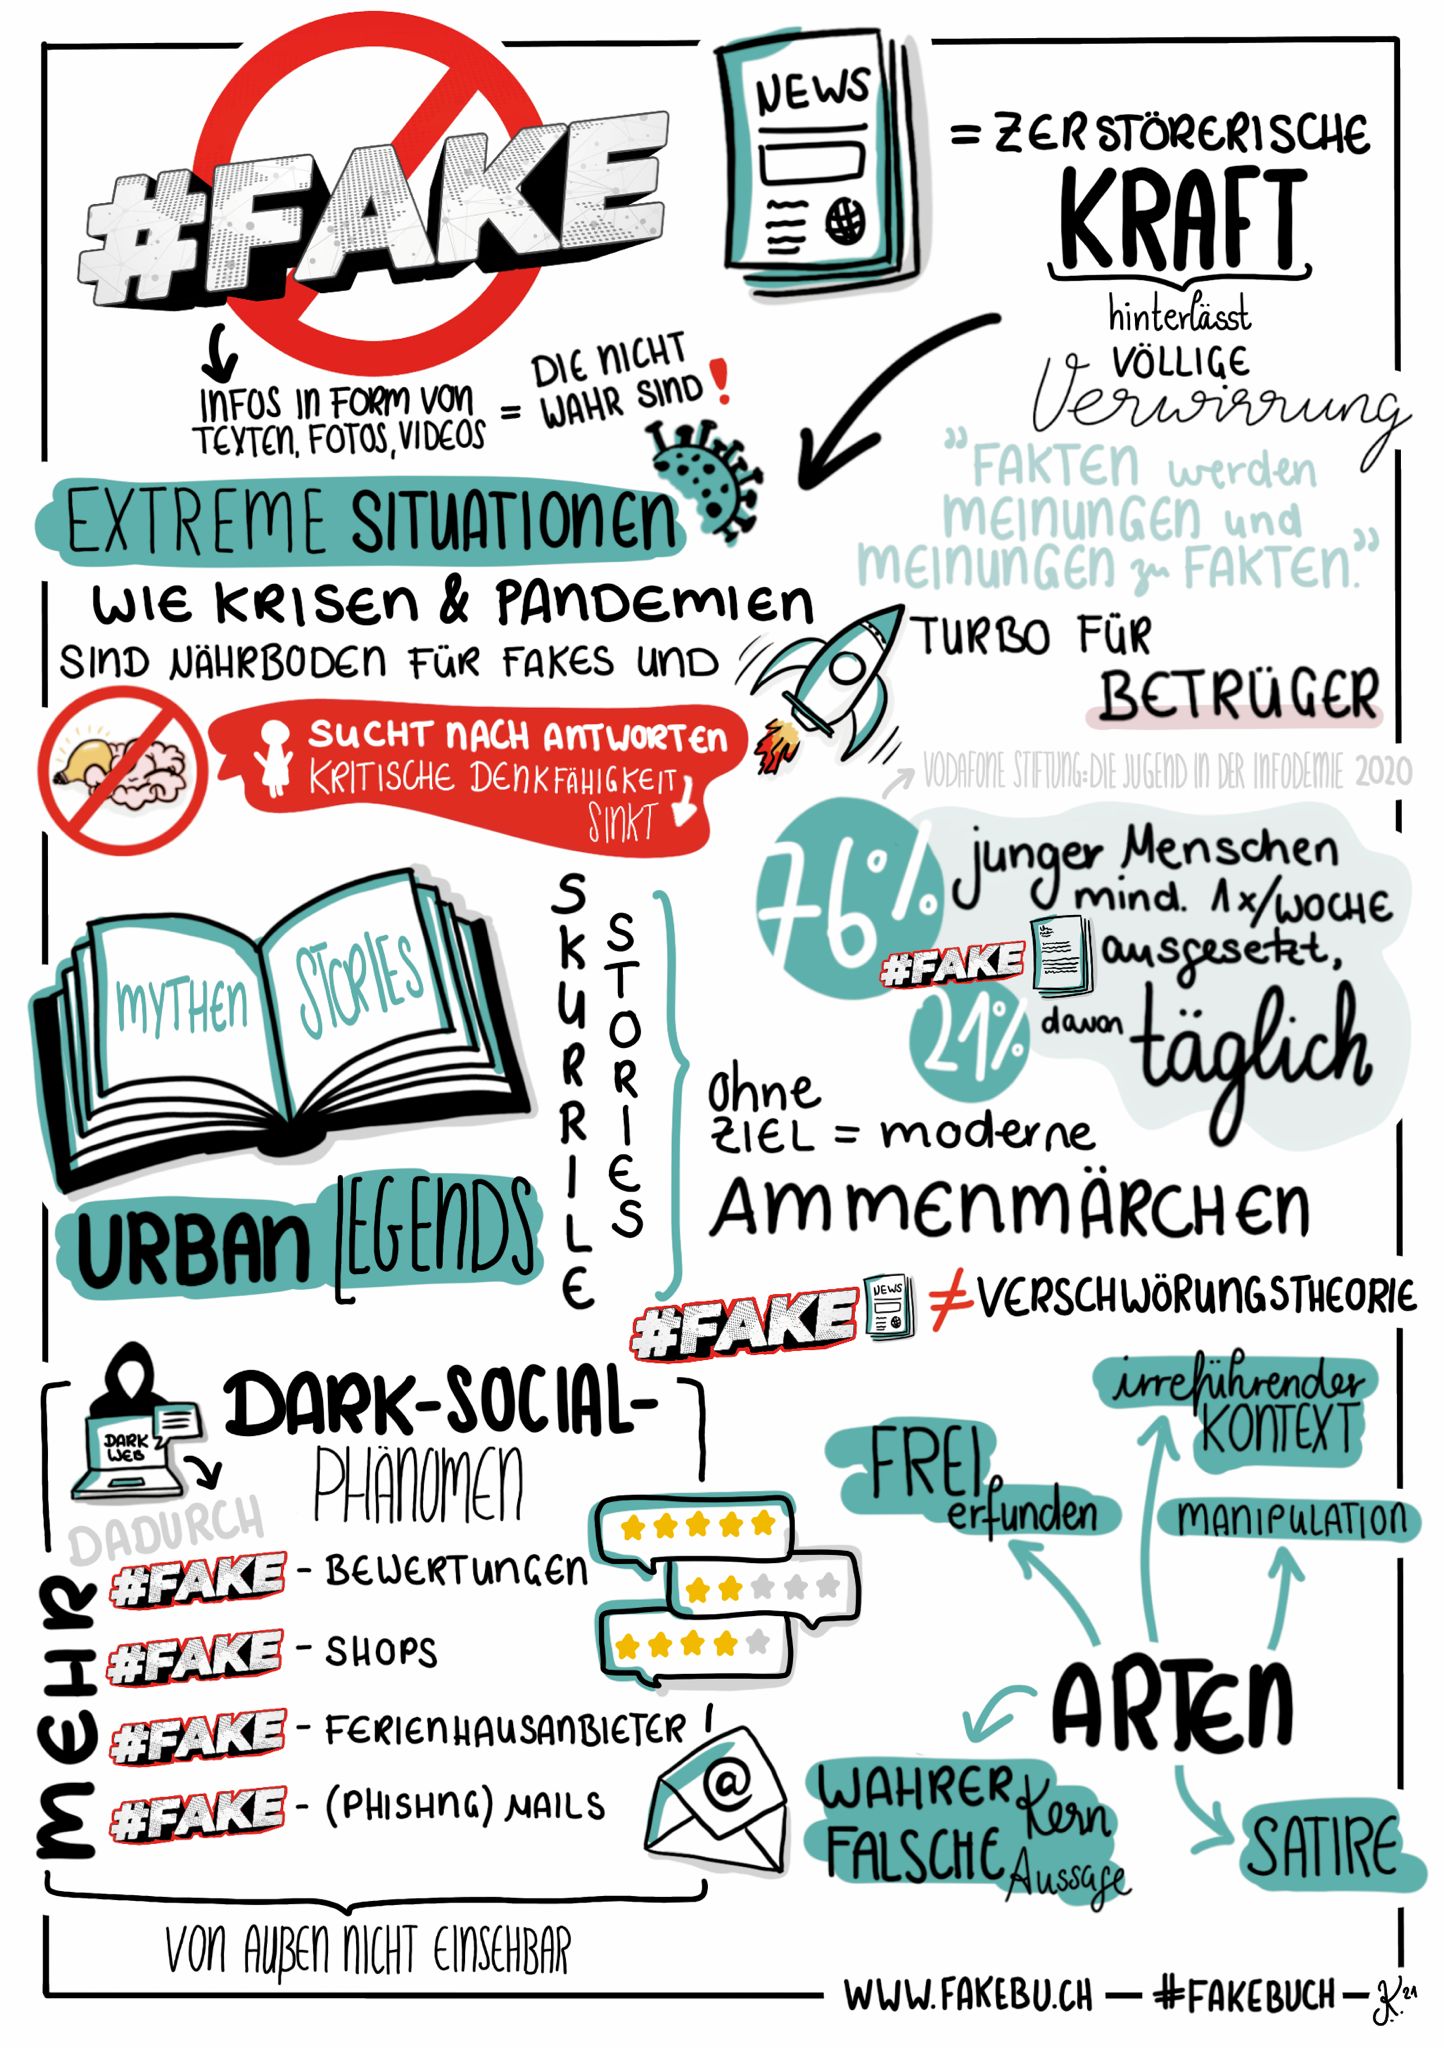 #FAKE
NEWS
= ZERSTÖRERISCHE
KRAFT
hinterlässt
VÖLLIGE
Verwirrung
INFOS IN FORM VON
TEXTEN, FOTOS, VIDEOS
=
DIE NICHT
WAHR SIND!
"FAKTEN werden
MEINUNGEN und
MEINUNGEN zu FAKTEN."
EXTREME SITUATIONEN
WIE KRISEN & PANDEMIEN
SIND NÄHRBODEN FÜR FAKES UND
TURBO FÜR
BETRÜGER
SUCHT NACH ANTWORTEN
KRITISCHE DENKFÄHIGKEIT
SINKT
VODAFONE STIFTUNG: DIE JUGEND IN DER INFODEMIE 2020
76% junger Menschen
mind. 1x/WOCHE
#FAKE ausgesetzt,
21% davon täglich
MYTHEN STORIES
URBAN LEGENDS
SKURRILE
STORIES
ohne
ZIEL = moderne
AMMENMÄRCHEN
#FAKE NEWS ≠ VERSCHWÖRUNGSTHEORIE
DARK
WEB
DARK-SOCIAL-
PHÄNOMEN
DADURCH
MEHR
#FAKE - BEWERTUNGEN
#FAKE - SHOPS
#FAKE - FERIENHAUSANBIETER
#FAKE - (PHISHNG) MAILS
@
VON AUßEN NICHT EINSEHBAR
irreführender
KONTEXT
FREI
erfunden
MANIPULATION
ARTEN
WAHRER Kern
FALSCHE Aussage
SATIRE
WWW.FAKEBU.CH — #FAKEBUCH — J.K. 21